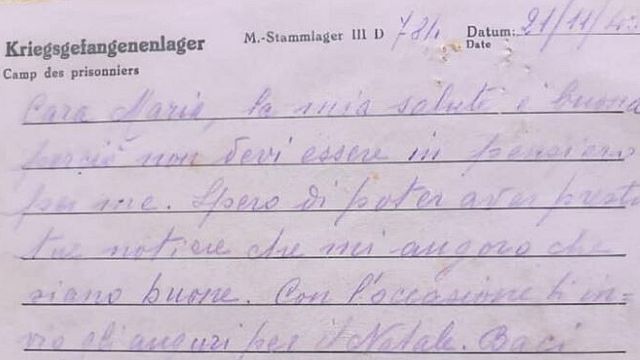 Kriegsgefangenenlager
Camp des prisonniers
M.-Stammlager III D 784
Datum: 21/11/43
Date
Cara Maria, la mia salute è buona
perciò non devi essere in pensiero
per me. Spero di poter aver presto
tue notizie che mi auguro che
siano buone. Con l'occasione ti in-
vio gli auguri per il Natale. Baci